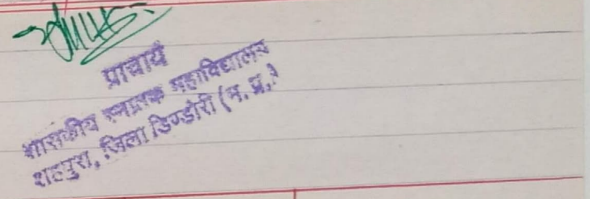 प्राचार्य
शासकीय स्नातक महाविद्यालय
शहपुरा, जिला डिण्डोरी (म. प्र.)